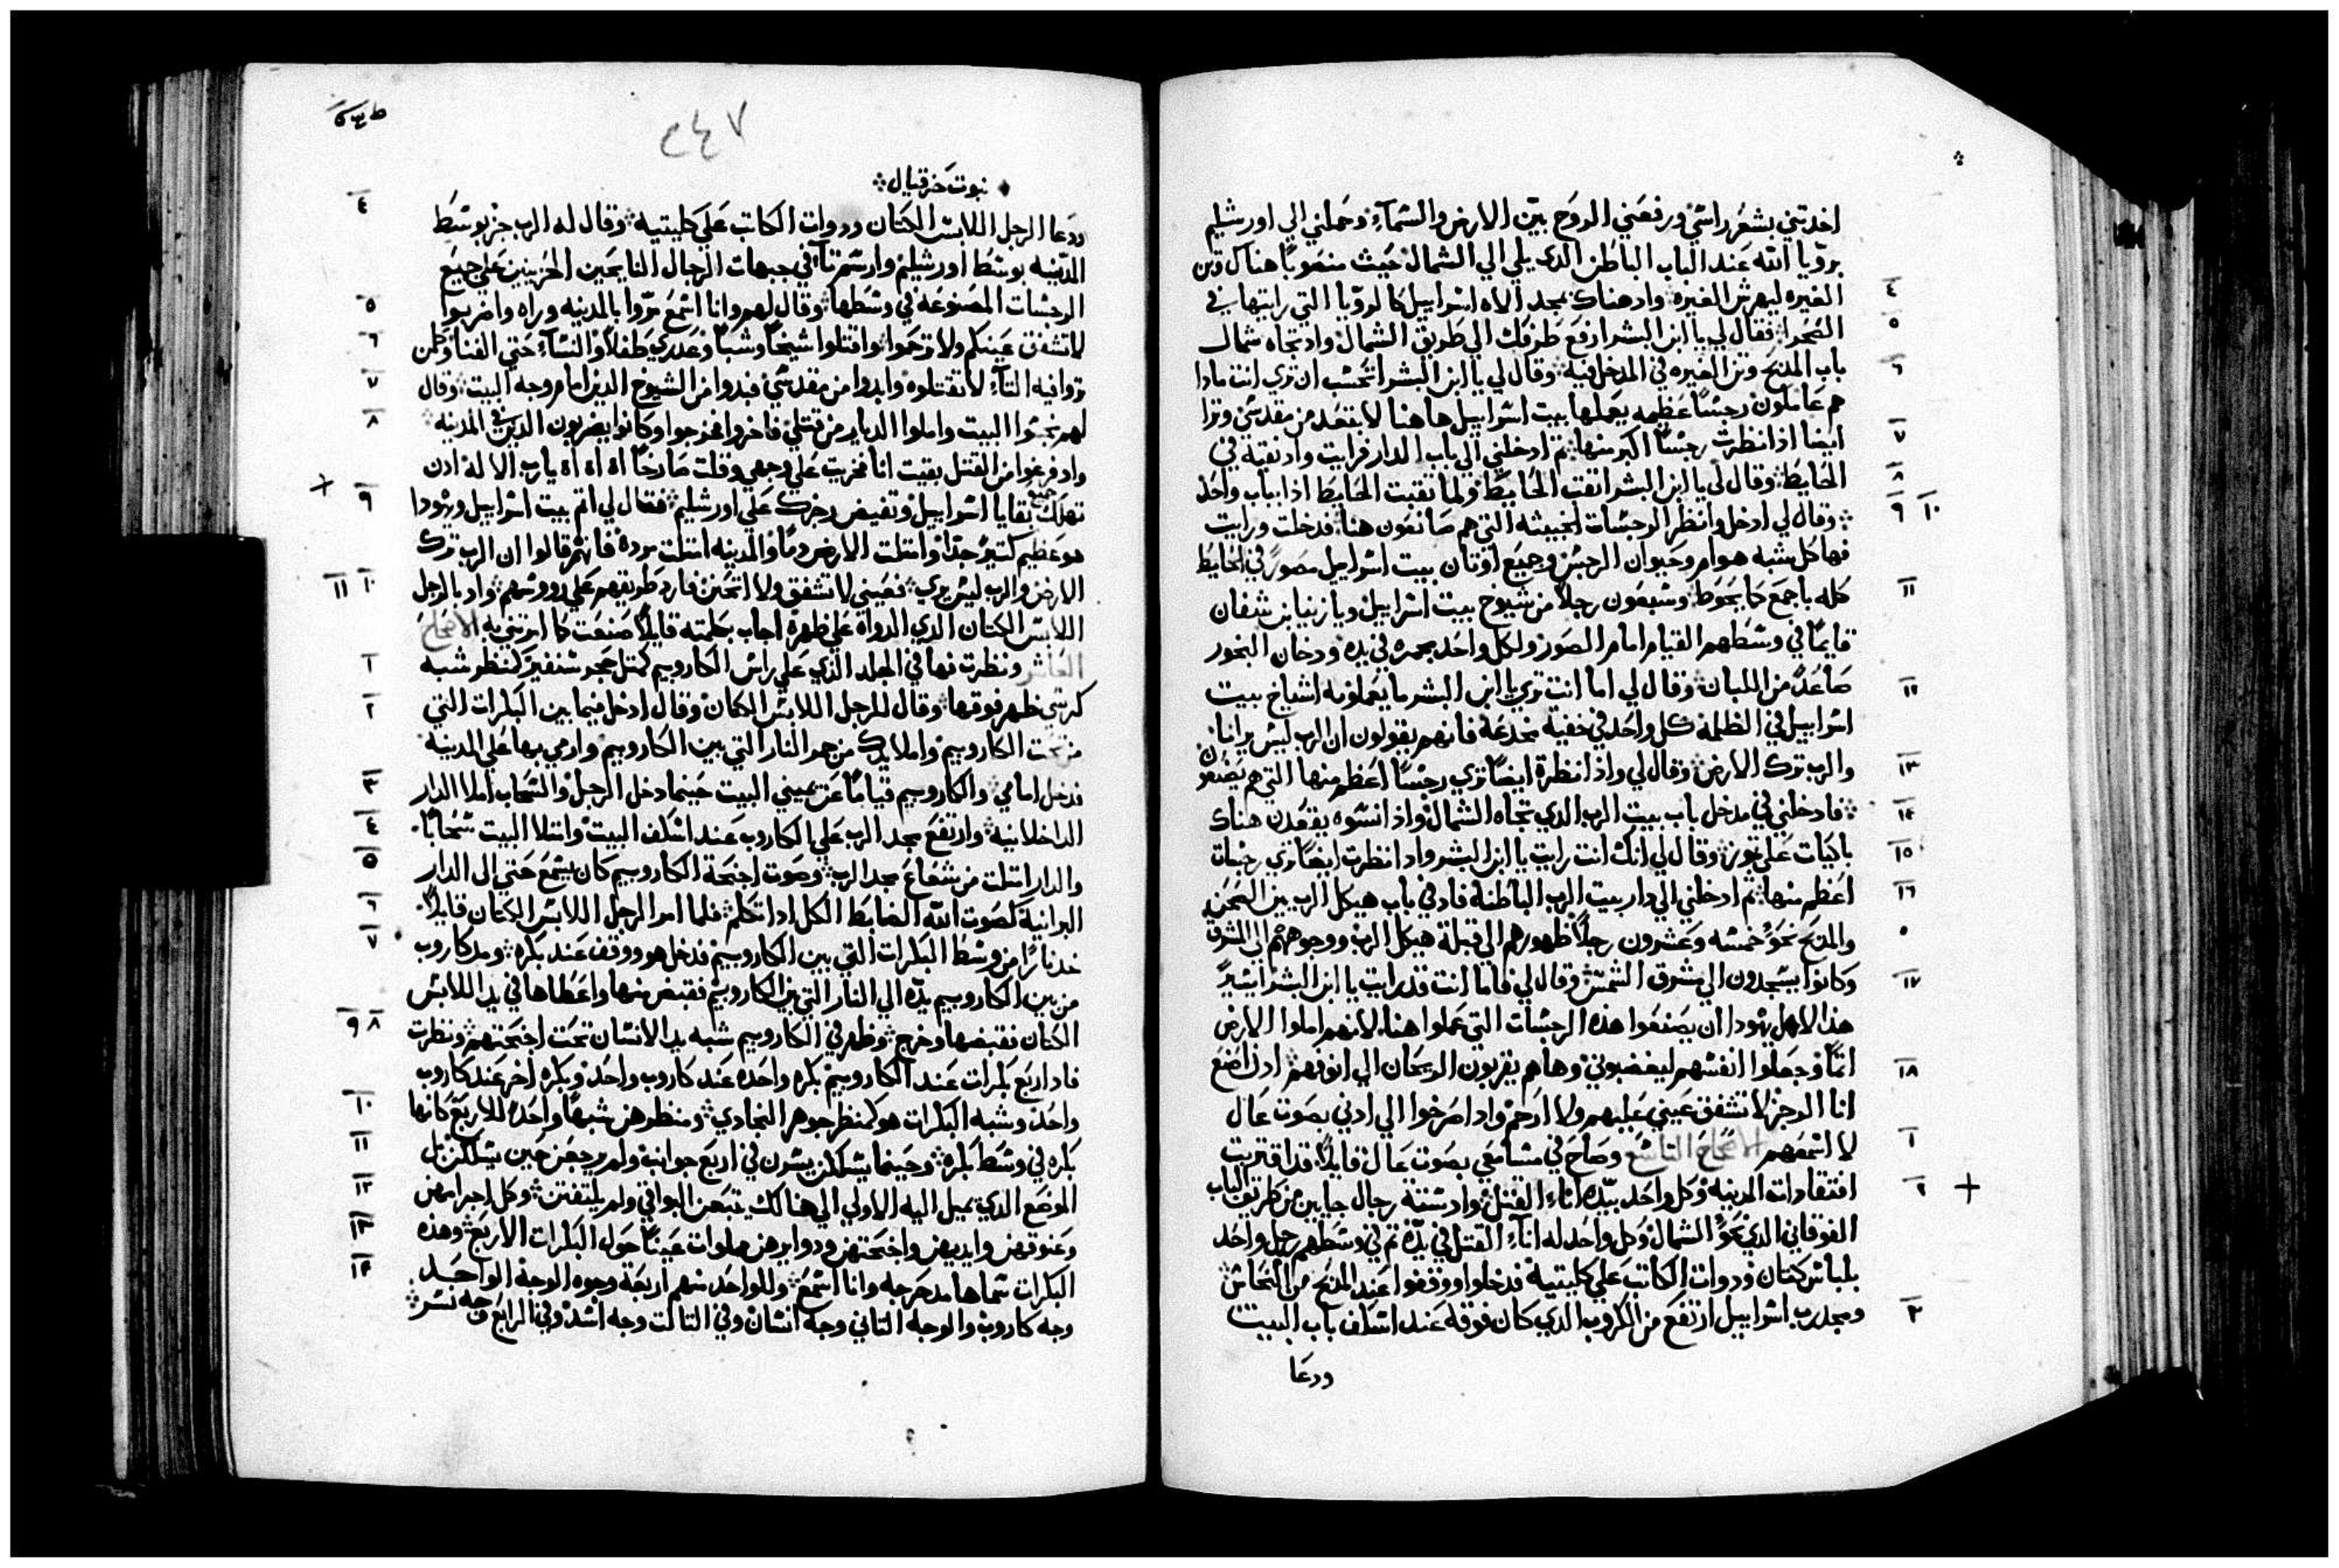 اخدتني بشعر راسي ورفعني الروح بين الارض والسمآء وحملني الي اورشليم
برويا الله عند الباب الباطن الدي يلي الي الشمال حيث منصوبا هناك وتن
الغيره ليهرش الغيره وادهناك بمجد الاه اسراييل كالرويا التي رايتها في
٤
الصحرا فقال لي يا ابن البشر ارفع طرفك الي طريق الشمال واد تجاه شمال
٥
باب المدبح وتن الغيره في المدخل فيه وقال لي يا ابن البشر اتحسب ان تري انت مادا
٦
هم عاملون رجسا عظيمه يعملها بيت اسراييل هاهنا لابتعد من مقدسي وترا
ايضا ادا نظرت رجسا اكبر منها تم ادخلني الي باب الدار فرايت واد نقبه في
٧
الحايط وقال لي يا ابن البشر انقب الحايط ولما نقبت الحايط ادا بباب واحد
٨
وقال لي ادخل وانظر الرجسات الخبيثه التي هم صانعون هنا فدخلت ورايت
٩ ١٠
فها كل شبه هوام وحيوان الرجس وجميع اوتان بيت اسراييل مصور في الحايط
كله باجمع كايحوط وسبعون رجلا من شيوخ بيت اسراييل ويازنيا بن شفان
١١
قايما في وسطهم القيام امام الصور ولكل واحد بحمره في يده ودخان البخور
صاعدا من اللبان وقال لي اما انت تري يا ابن البشر ما يعملونه اشياخ بيت
١٢
اسراييل في الظلمه كل واحد في خفية مخدعه فانهم يقولون ان الرب ليس يرانا
والرب ترك الارض وقال لي واد انظرة ايضا تري رجسا اعظم منها التي هم يصنعون
١٣
فادخلني في مدخل باب بيت الرب الدي تجاه الشمال واد انسوه يقعدن هناك
١٤
باكيات علي توز وقال لي انك انت رايت يا ابن البشر واد انظرت ايضا تري رجسات
١٥
اعظم منها تم ادخلني الي دار بيت الرب الباطنة فاد في باب هيكل الرب بين الصحن
١٦
والمدبح نحو خمسه وعشرون رجلا ظهورهم الي قبلة هيكل الرب ووجوههم الي المشرق
وكانوا يسجدون الي مشرق الشمس وقال لي فاما انت قد رايت يا ابن البشر ايسير
١٧
هدا لاهل يهودا ان يصنعوا هده الرجسات التي عملوا هنا لانهم املوا الارض
اتما وجعلوا انفسهم ليغضبوني وهاهم يقربون الريحان الي انوفهم ادن اصنع
١٨
انا الرجز لا تشفق عيني عليهم ولا ارحم واد اصرخوا الي ادني بصوت عال
لا اسمعهم الاصحاح التاسع وصاح في مسامعي بصوت عال قايلا قد اقتربت
١
افتقادات المدينه وكل واحد بيده اناء القتل واد ستة رجال جايين من طريق الباب
٢
الفوقاني الدي نحو الشمال وكل واحد له اناء القتل في يده تم في وسطهم رجل واحد
بلباس كتان ودوات الكاتب علي كليتيه فدخلوا ووقفوا عند المدبح من النحاس
ومجد رب اسراييل ارتفع من الكروب الدي كان فوقه عند اسكف باب البيت
٣
ودعا
٢٤٧
نبوت حزقيال
ودعا الرجل اللابس الكتان ودوات الكاتب علي كليتيه وقال له الرب جز بوسط
٤
المدينه بوسط اورشليم وارسم تآ في جبهات الرجال النايحين الحزينين علي جميع
الرجسات المصنوعه في وسطها وقال لهم وانا اسمع مروا بالمدينه وراه واضربوا
٥
لا تشفق عينكم ولا ترحموا واقتلوا شيخا وشبا وعدري طفلا والنسآء حتي الفنا وكلمن
٦
تروا فيه التآء لا تقتلوه وابدوا من مقدسي فبدوا من الشيوخ الدين امام وجه البيت وقال
٧
لهم نجسوا البيت واملوا الديار من قتلي فاخرجوا فخرجوا وكانوا يضربون الدين في المدينه
٨
واد فرغوا من القتل بقيت انا فخريت علي وجهي وقلت صارخا اه اه اه يارب الاله ادن
تهلك جميع بقايا اسراييل وتفيض رجزك علي اورشليم فقال لي اتم بيت اسراييل ويهودا
٩
هو عظيم كتير جدا وامتلت الارض دما والمدينه امتلت مردة فانهم قالوا ان الرب ترك
الارض والرب ليس يري فعيني لا تشفق ولا اتحنن فارد طريقهم علي رووسهم واد بالرجل
١٠ ١١
اللابس الكتان الدي الدواة علي ظهره اجاب بكلمته قايلا صنعت كما امرتني به الاصحاح
العاشر ونظرت فها في الجلد الدي علي راس الكاروبيم كمتل حجر سنفير كمنظر شبه
١
كرسي ظهر فوقها وقال للرجل اللابس الكتان وقال ادخل فيما بين البكرات التي
٢
من تحت الكاروبيم واملا يدك من جمر النار التي بين الكاروبيم وارمي بها علي المدينه
فدخل امامي والكاروبيم قياما عن يميني البيت حينما دخل الرجل والسحاب املا الدار
٣
الداخلانيه وارتفع مجد الرب علي الكاروب عند اسكف البيت وامتلا البيت سحابا
٤
والدار امتلت من شعاع مجد الرب وصوت اجنحة الكاروبيم كان يسمع حتي الي الدار
٥
البرانية كصوت الله الضابط الكل ادا تكلم فلما امر الرجل اللابس الكتان قايلا
٦
خد نارا من وسط البكرات التي بين الكاروبيم فدخل هو ووقف عند بكره ومد كاروب
٧
من بين الكاروبيم يده الي النار التي بين الكاروبيم فقبض منها واعطاها في يد اللابس
الكتان فقبضها وخرج وظهر في الكاروبيم شبه يد الانسان تحت اجنحتهم ونظرت
٨ ٩
فاد اربع بكرات عند الكاروبيم بكره واحده عند كاروب واحد وبكره اخر عند كاروب
واحد وشبه البكرات هو كمنظر جوهر النجادي ومنظرهن شبها واحدا للاربع كانها
١٠
بكره في وسط بكره وحينما يسلكن يسرن في اربع جوانب ولم يرجعن حين يسلكن بل
١١
الموضع الدي يميل اليه الاولي الي هنالك يتبعن البواقي ولم يلتفتن وكل اجرامهن
١٢
وعنوقهن وايديهن واجنحتهن ودوايرهن مملوات عينا حول البكرات الاربع وهده
١٣
البكرات سماها مدحرجه وانا اسمع وللواحد منهم اربعة وجوه الوجه الواحد
١٤
وجه كاروب والوجه التاني وجه انسان وفي التالت وجه اسد وفي الرابع وجه نسر